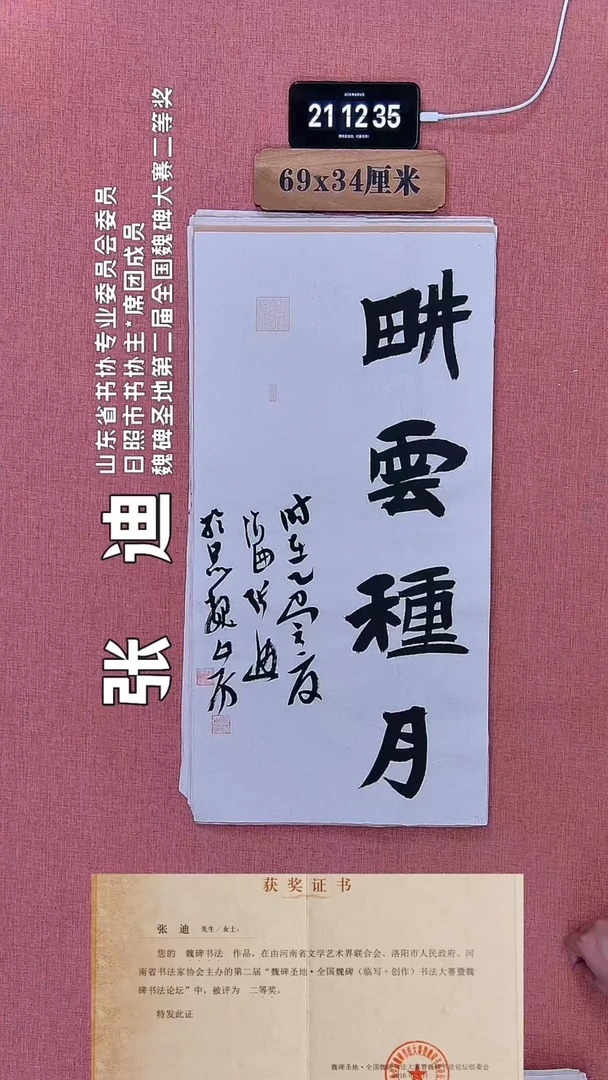 21 12 35
69x34厘米
畊雲種月
时在乙巳之夏
张迪
山东省书协专业委员会委员
日照市书协主*席团成员
魏碑圣地第二届全国魏碑大赛二等奖
张 迪
获奖证书
张 迪 先生/女士:
您的 魏碑书法 作品，在由河南省文学艺术界联合会、洛阳市人民政府、河
南省书法家协会主办的第二届“魏碑圣地·全国魏碑（临写+创作）书法大赛暨魏
碑书法论坛”中，被评为 二等奖。
特发此证
魏碑圣地·全国魏碑书法大赛暨魏碑书法论坛组委会